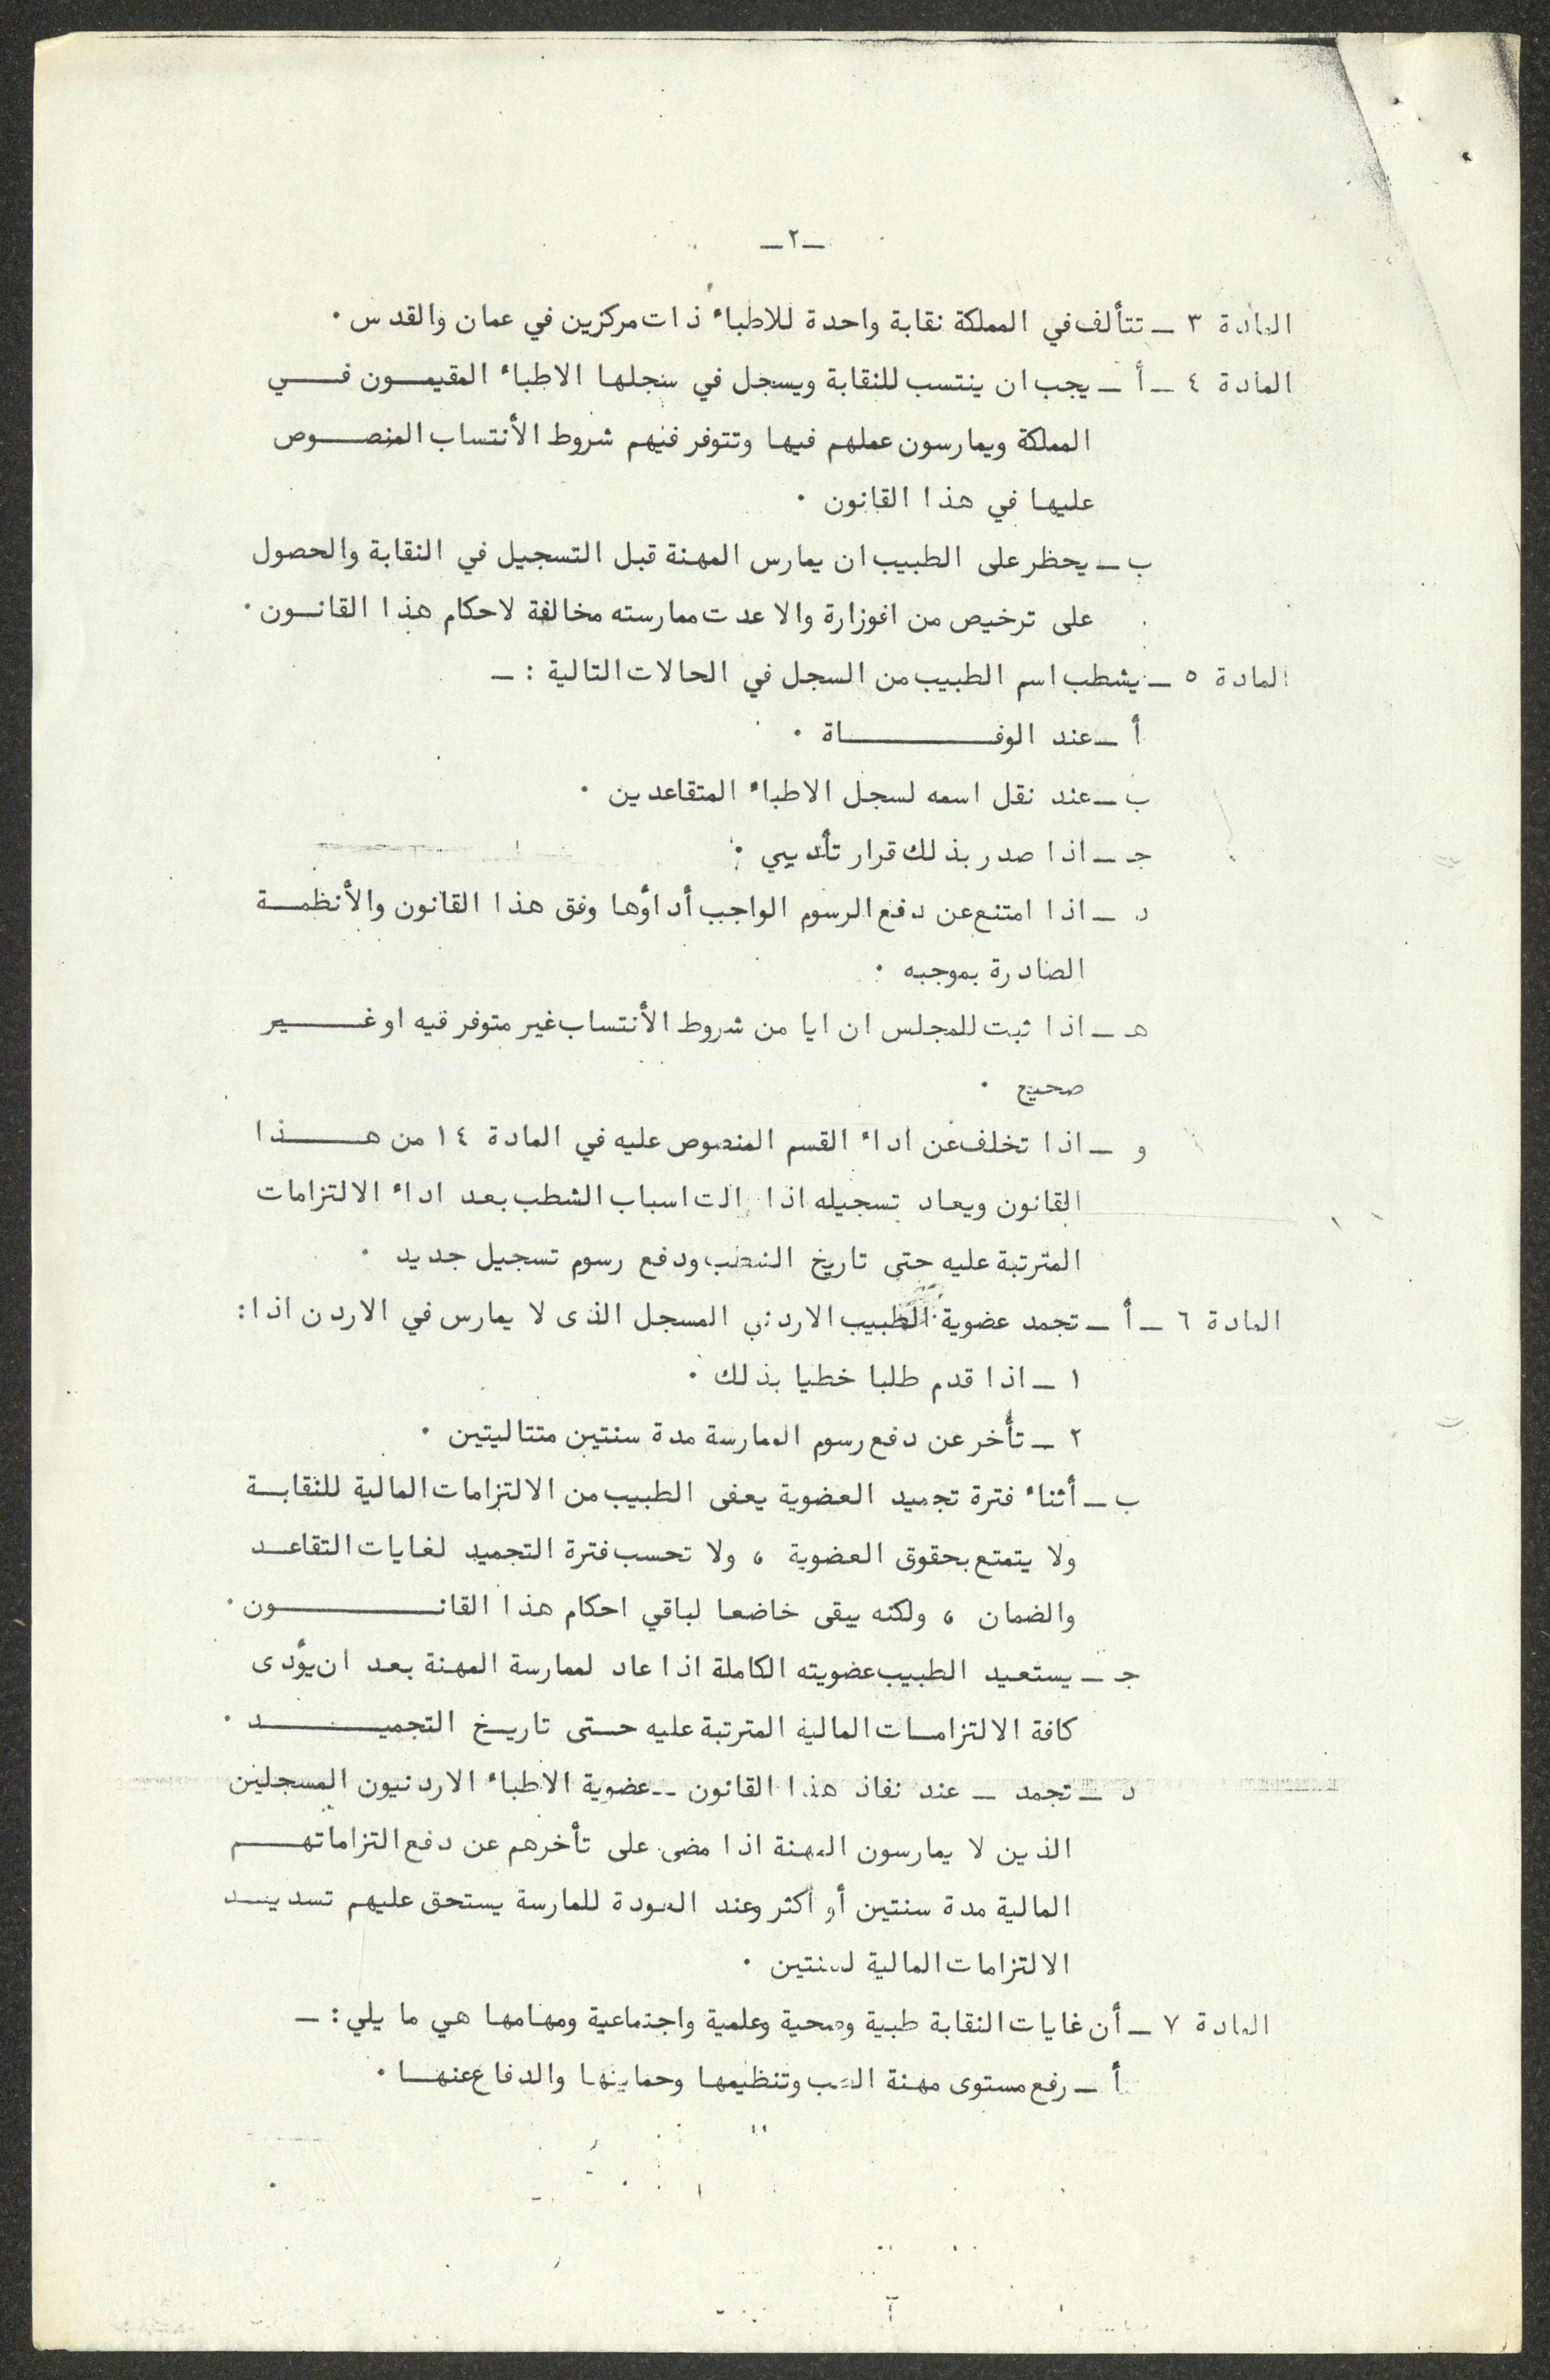 ـ٢ـ
المادة ٣ ـ تتألف في المملكة نقابة واحدة للاطباء ذات مركزين في عمان والقدس ٠
المادة ٤ ـ أ ـ يجب ان ينتسب للنقابة ويسجل في سجلها الاطباء المقيمون في
المملكة ويمارسون عملهم فيها وتتوفر فيهم شروط الأنتساب المنصوص
عليها في هذا القانون ٠
ب ـ يحظر على الطبيب ان يمارس المهنة قبل التسجيل في النقابة والحصول
على ترخيص من اغوزارة والا عدت ممارسته مخالفة لاحكام هذا القانون ٠
المادة ٥ ـ يشطب اسم الطبيب من السجل في الحالات التالية : ـ
أ ـ عند الوفاة ٠
ب ـ عند نقل اسمه لسجل الاطباء المتقاعدين ٠
جـ ـ اذا صدر بذلك قرار تأديبي ٠
د ـ اذا امتنع عن دفع الرسوم الواجب أداؤها وفق هذا القانون والأنظمة
الصادرة بموجبه ٠
هـ ـ اذا ثبت للمجلس ان ايا من شروط الأنتساب غير متوفر فيه او غير
صحيح ٠
و ـ اذا تخلف عن اداء القسم المنصوص عليه في المادة ١٤ من هذا
القانون ويعاد تسجيله اذا الت اسباب الشطب بعد اداء الالتزامات
المترتبة عليه حتى تاريخ الشطب ودفع رسوم تسجيل جديد ٠
المادة ٦ ـ أ ـ تجمد عضوية الطبيب الاردني المسجل الذى لا يمارس في الاردن اذا :
١ ـ اذا قدم طلبا خطيا بذلك ٠
٢ ـ تأخر عن دفع رسوم الممارسة مدة سنتين متتاليتين ٠
ب ـ أثناء فترة تجميد العضوية يعفى الطبيب من الالتزامات المالية للنقابة
ولا يتمتع بحقوق العضوية ، ولا تحسب فترة التجميد لغايات التقاعد
والضمان ، ولكنه يبقى خاضعا لباقي احكام هذا القانون ٠
جـ ـ يستعيد الطبيب عضويته الكاملة اذا عاد لممارسة المهنة بعد ان يؤدى
كافة الالتزامات المالية المترتبة عليه حتى تاريخ التجميد ٠
د ـ تجمد ـ عند نفاذ هذا القانون ـ عضوية الاطباء الاردنيون المسجلين
الذين لا يمارسون المهنة اذا مضى على تأخرهم عن دفع التزاماتهم
المالية مدة سنتين أو أكثر وعند العودة للمارسة يستحق عليهم تسديد
الالتزامات المالية لسنتين ٠
المادة ٧ ـ أن غايات النقابة طبية وصحية وعلمية واجتماعية ومهامها هي ما يلي : ـ
أ ـ رفع مستوى مهنة الطب وتنظيمها وحمايتها والدفاع عنها ٠